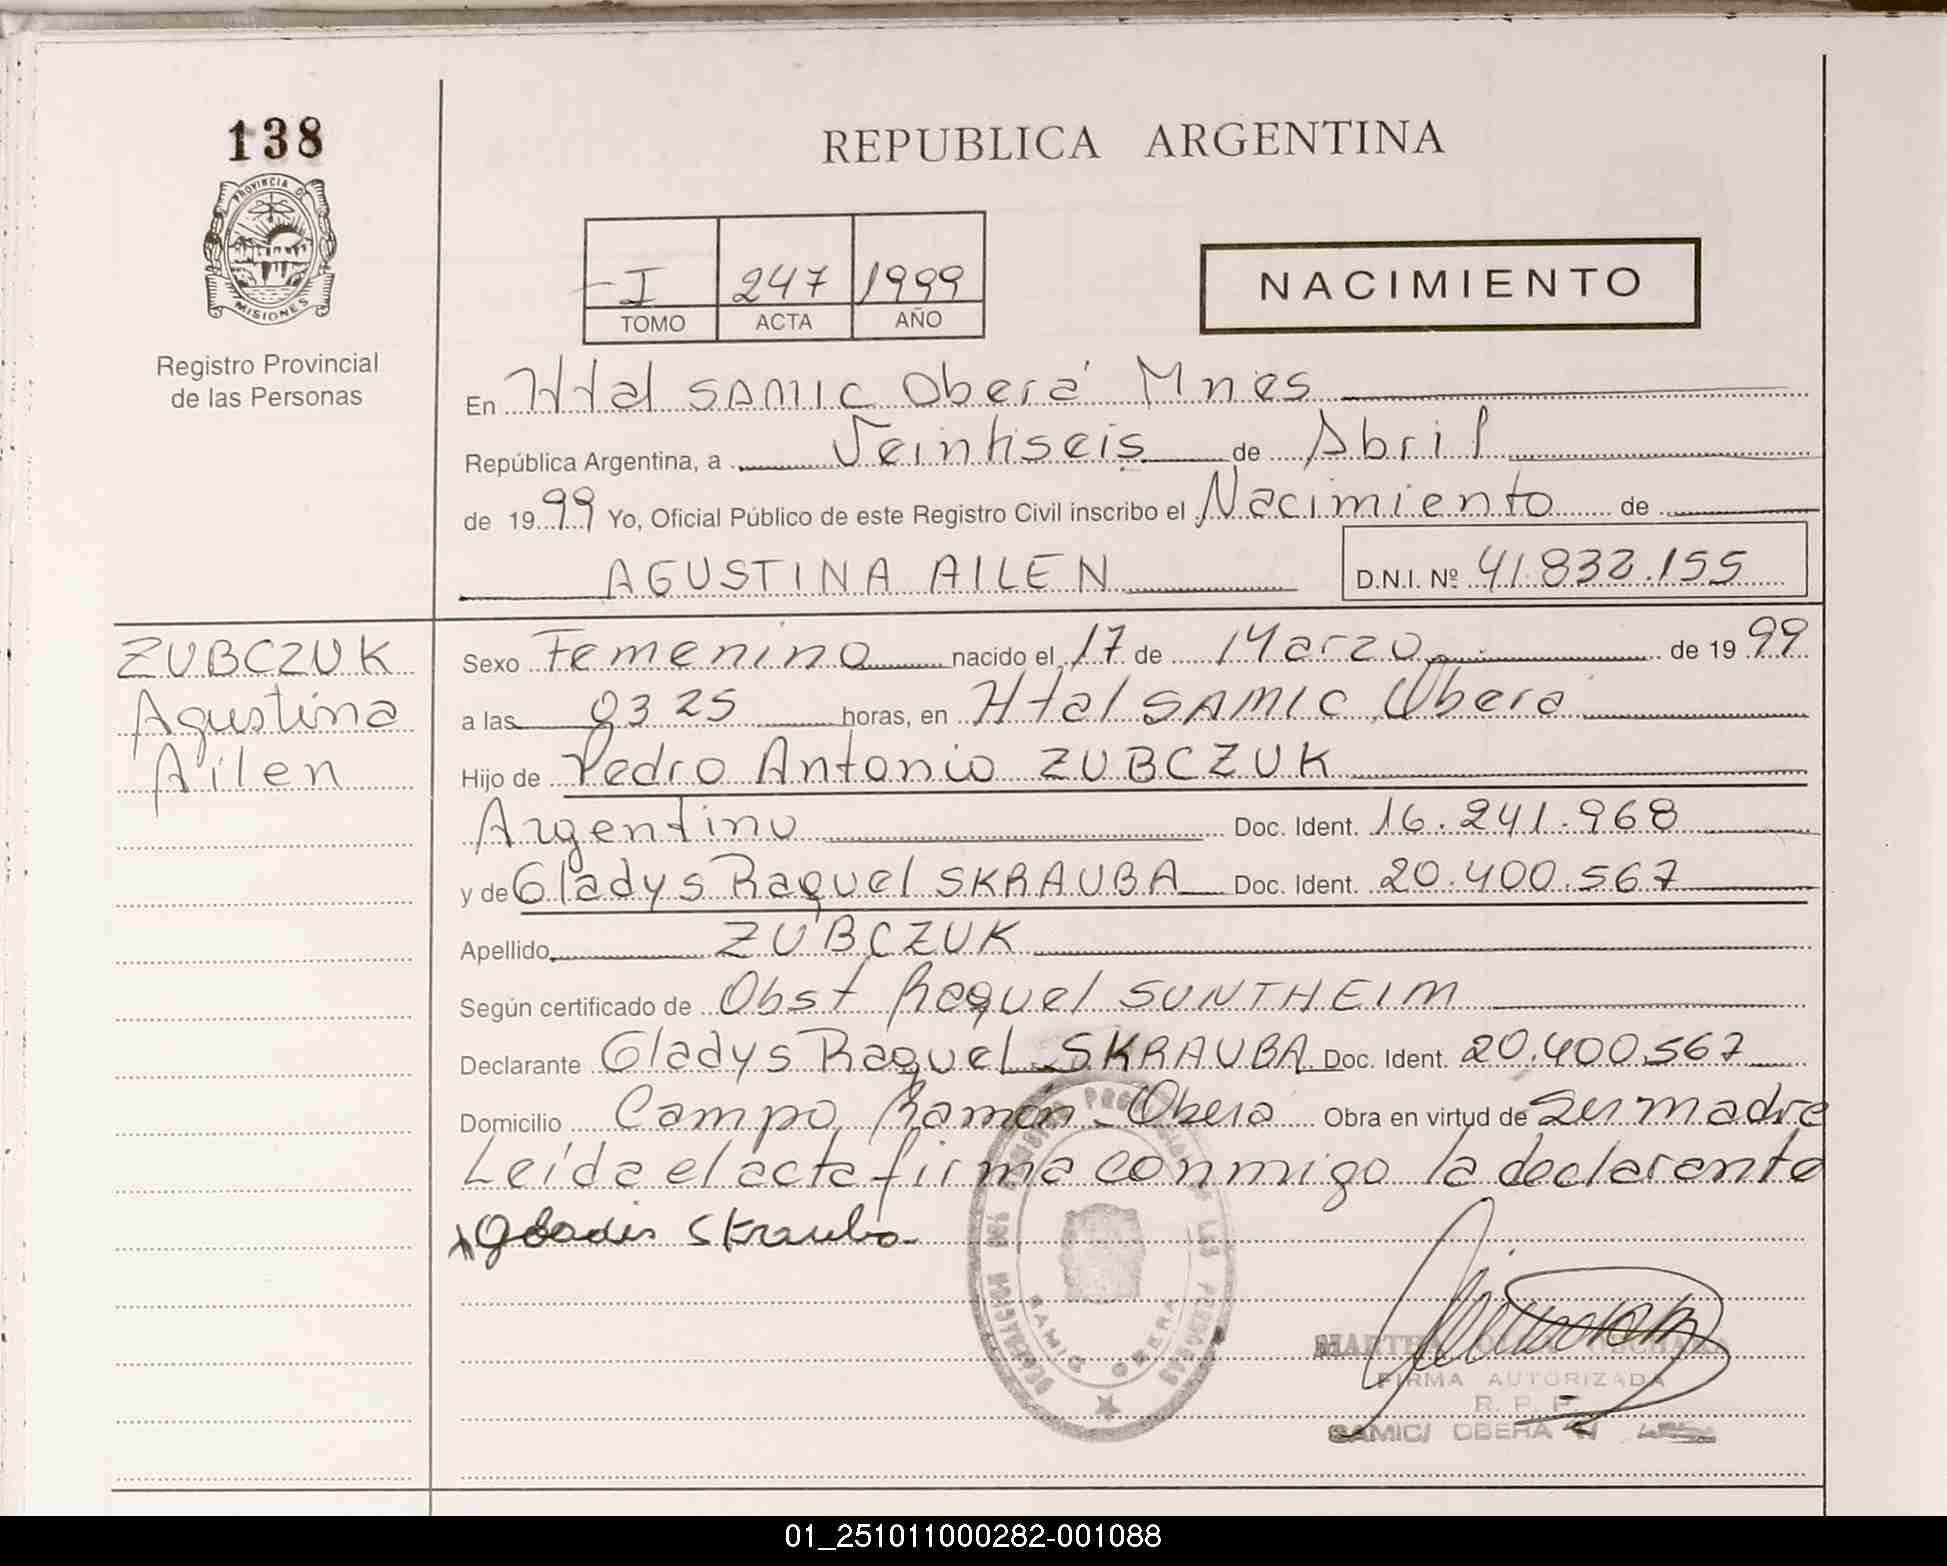 138
PROVINCIA D
MISIONES
Registro Provincial
de las Personas
REPUBLICA ARGENTINA
I 247 1999
TOMO ACTA AÑO
NACIMIENTO
En Htal SAMIC Oberá Mnes
República Argentina, a Veintiseis de Abril
de 1999 Yo, Oficial Público de este Registro Civil inscribo el Nacimiento de
AGUSTINA AILEN D.N.I. Nº 41.832.155
ZUBCZUK
Agustina
Ailen
Sexo Femenino nacido el 17 de Marzo de 1999
a las 03 25 horas, en Htal SAMIC Obera
Hijo de Pedro Antonio ZUBCZUK
Argentino Doc. Ident. 16.241.968
y de Gladys Raquel SKRAUBA Doc. Ident. 20.400.567
Apellido ZUBCZUK
Según certificado de Obst Raquel SUNTHEIM
Declarante Gladys Raquel SKRAUBA Doc. Ident. 20.400.567
Domicilio Campo Ramón - Obera Obra en virtud de ser madre
Leída el acta firma conmigo la declarante
Skrauba
SAMIC OBERA
MARTHA
FIRMA AUTORIZADA
R. P. P.
SAMIC/ OBERA
01_251011000282-001088